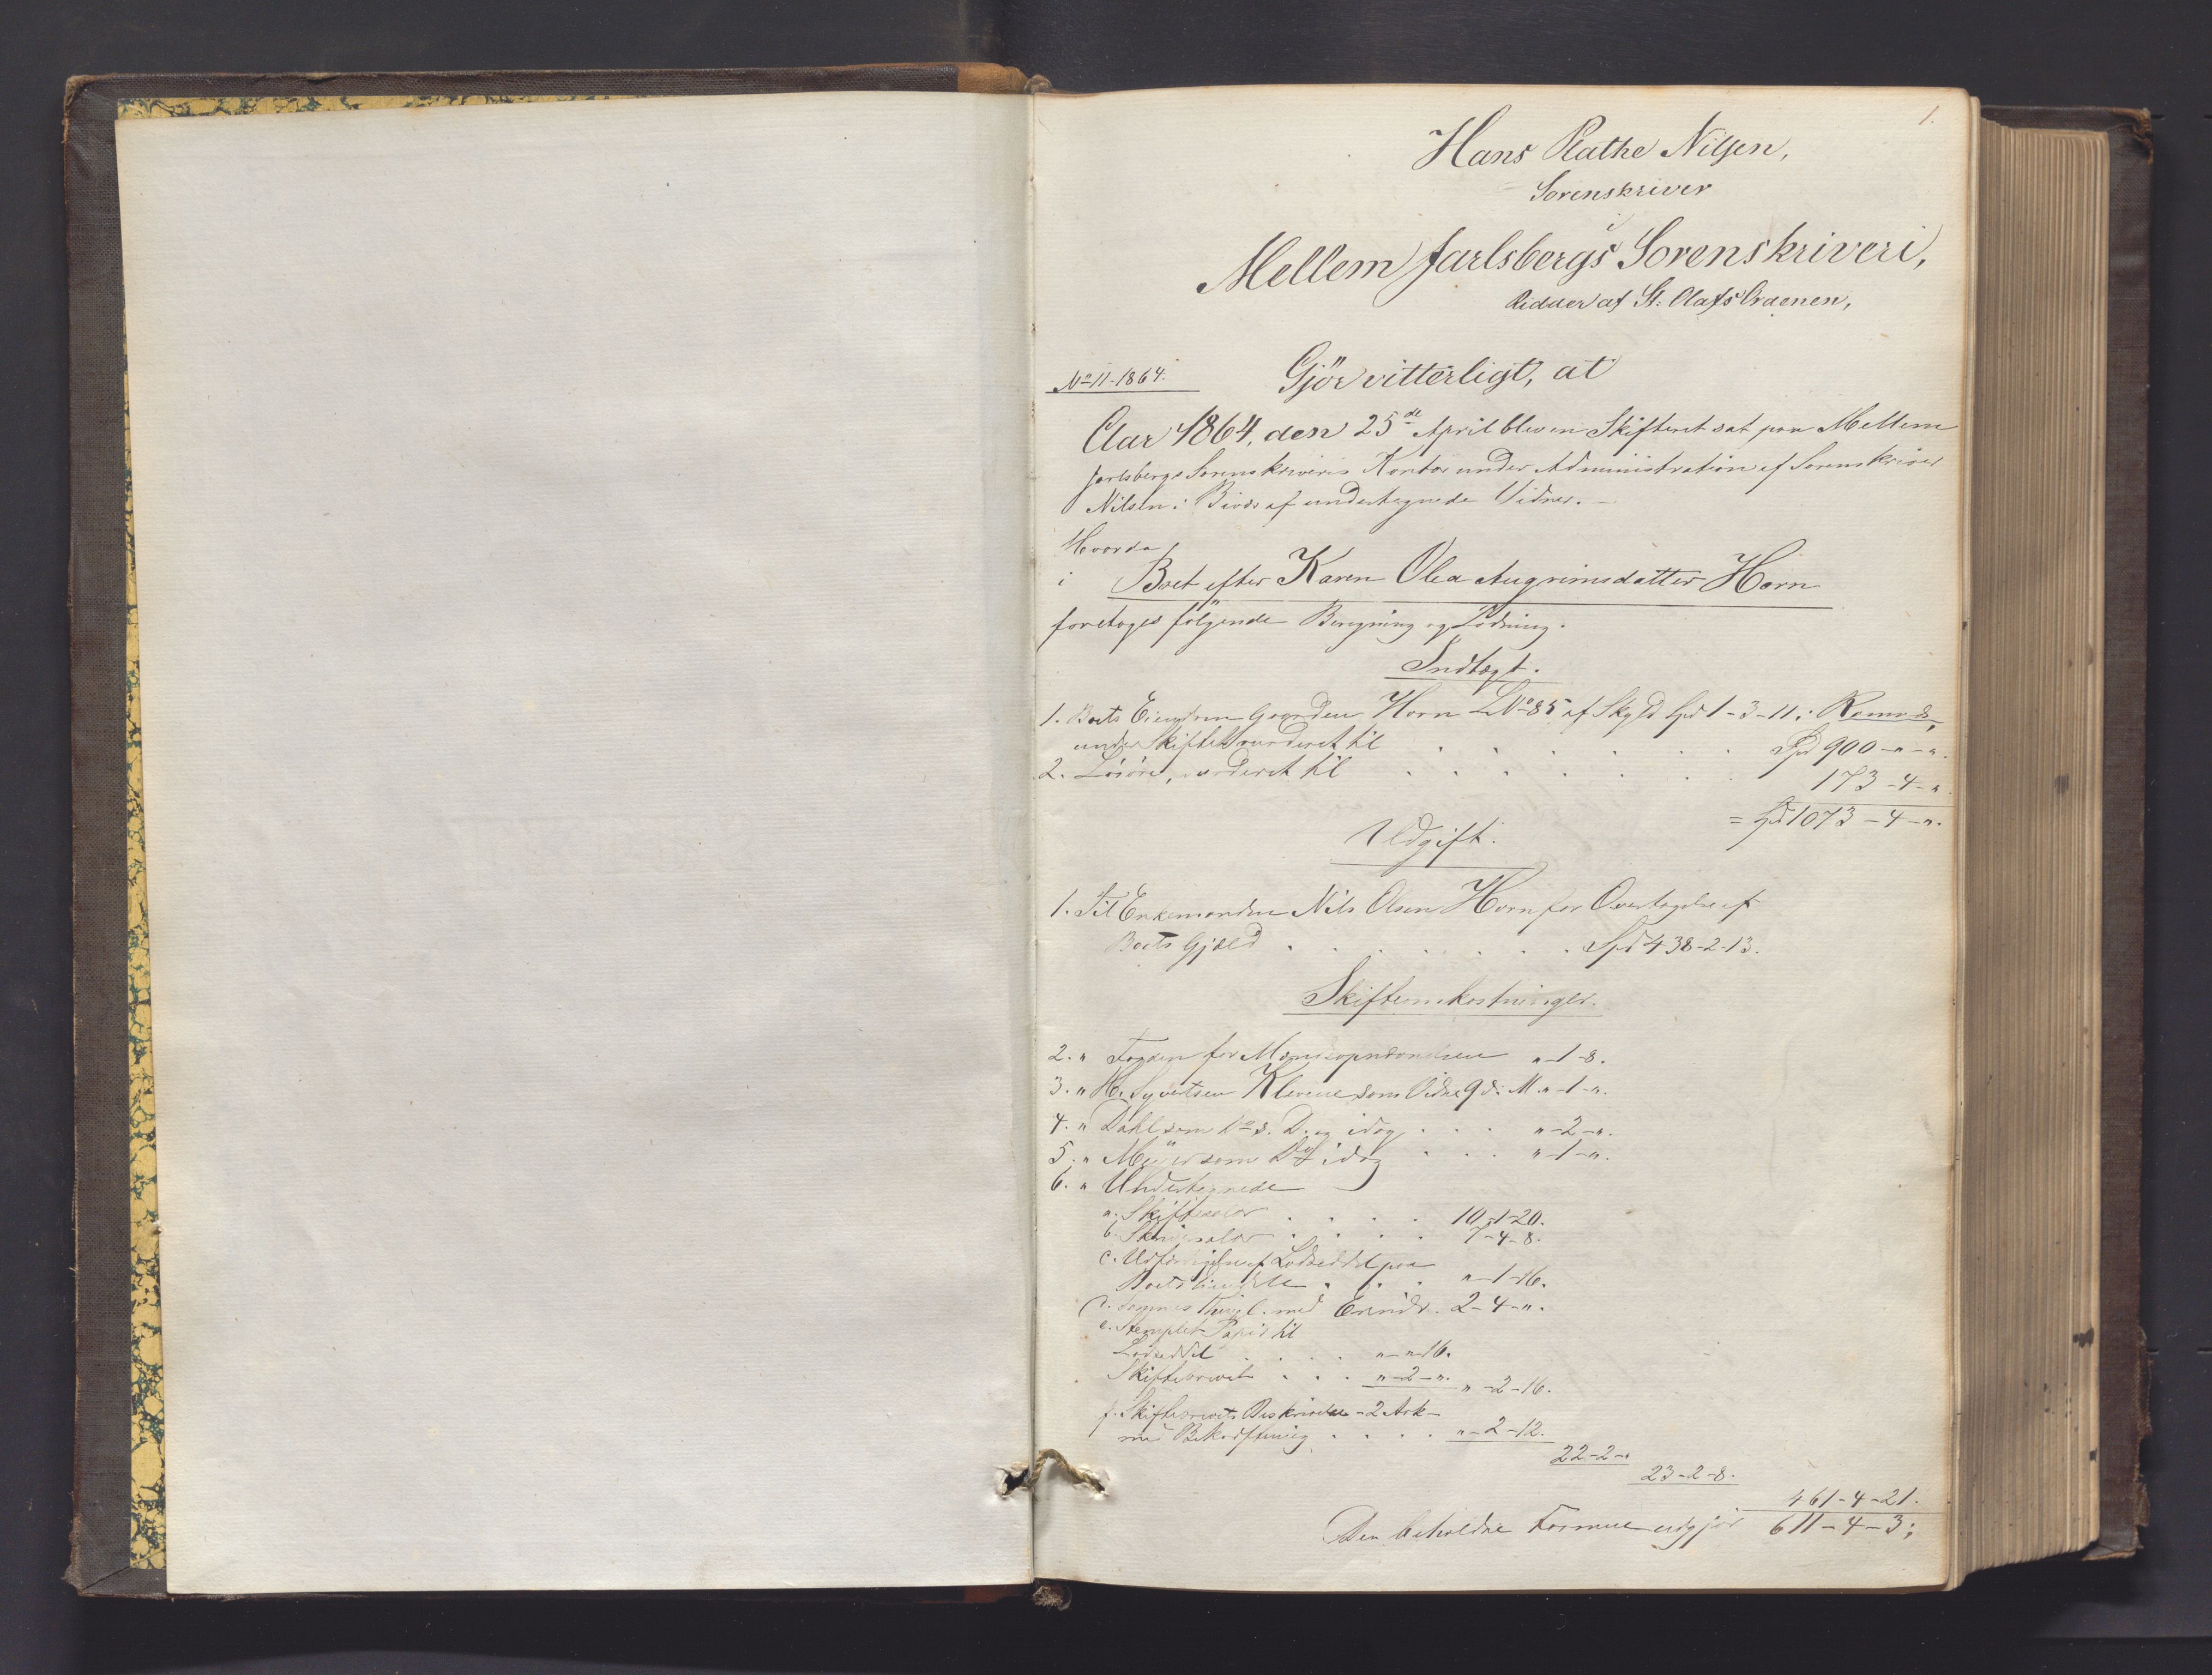 1.
Hans Rathe Nilsen,
Sorenskriver
i
Mellem Jarlsbergs Sorenskriveri,
Ridder af St: Olafs Ordenen,
No 11-1864.
Gjör vitterligt, at
Aar 1864, den 25de April blev en Skifteret sat paa Mellem
Jarlsbergs Sorenskriveris Kontor under Administration af Sorenskriver
Nilsen i Bivær af undertegnede Vidner. -
Hvorda
i Boet efter Karen Olea Augrimsdatter Horn
foretoges fölgende Beregning og Lodning.
Indtægt.
1. Boets Eiendom Gaarden Horn LNo 85 af Skyld Spd 1-3-11 i Ramnæs,
under Skiftet vurderet til . . . . . . . Spd 900-"-".
2. Lösöre, vurderet til . . . . . . . 173-4-".
= Spd 1073-4-".
Udgift.
1. Til Enkemanden Nils Olsen Horn for Overtagelse af
Boets Gjæld . . . . . . . Spd 438-2-13.
Skifteomkostninger.
2. " Fogden for "-1-8.
3. " H. Syvertsen Klevene som Vidne 9 d: M. "-1-".
4. " Dahl som do 8. D. og idag . . . "-2-".
5. " som Do idag . . . "-1-".
6. " Undertegnede
a. Skiftesalær . . . . 10-1-20.
b. Skrivesalær . . . . 7-4-8.
c. Udfærdigelse af Lodseddel paa
Boets Eiendele . . . "-1-16.
d. Sammes Thingl. med Erindr. 2-4-".
e. Stemplet Papir til
Lodseddel . . . . "-"-16.
Skiftebrevet . . . "-2-". "-2-16.
f. Skiftebrevets Beskrivelse - 2 Ark -
med Bekræftning . . . . "-2-12.
22-2-"
23-2-8.
461-4-21.
Den beholdne Formue udgjör 611-4-3;